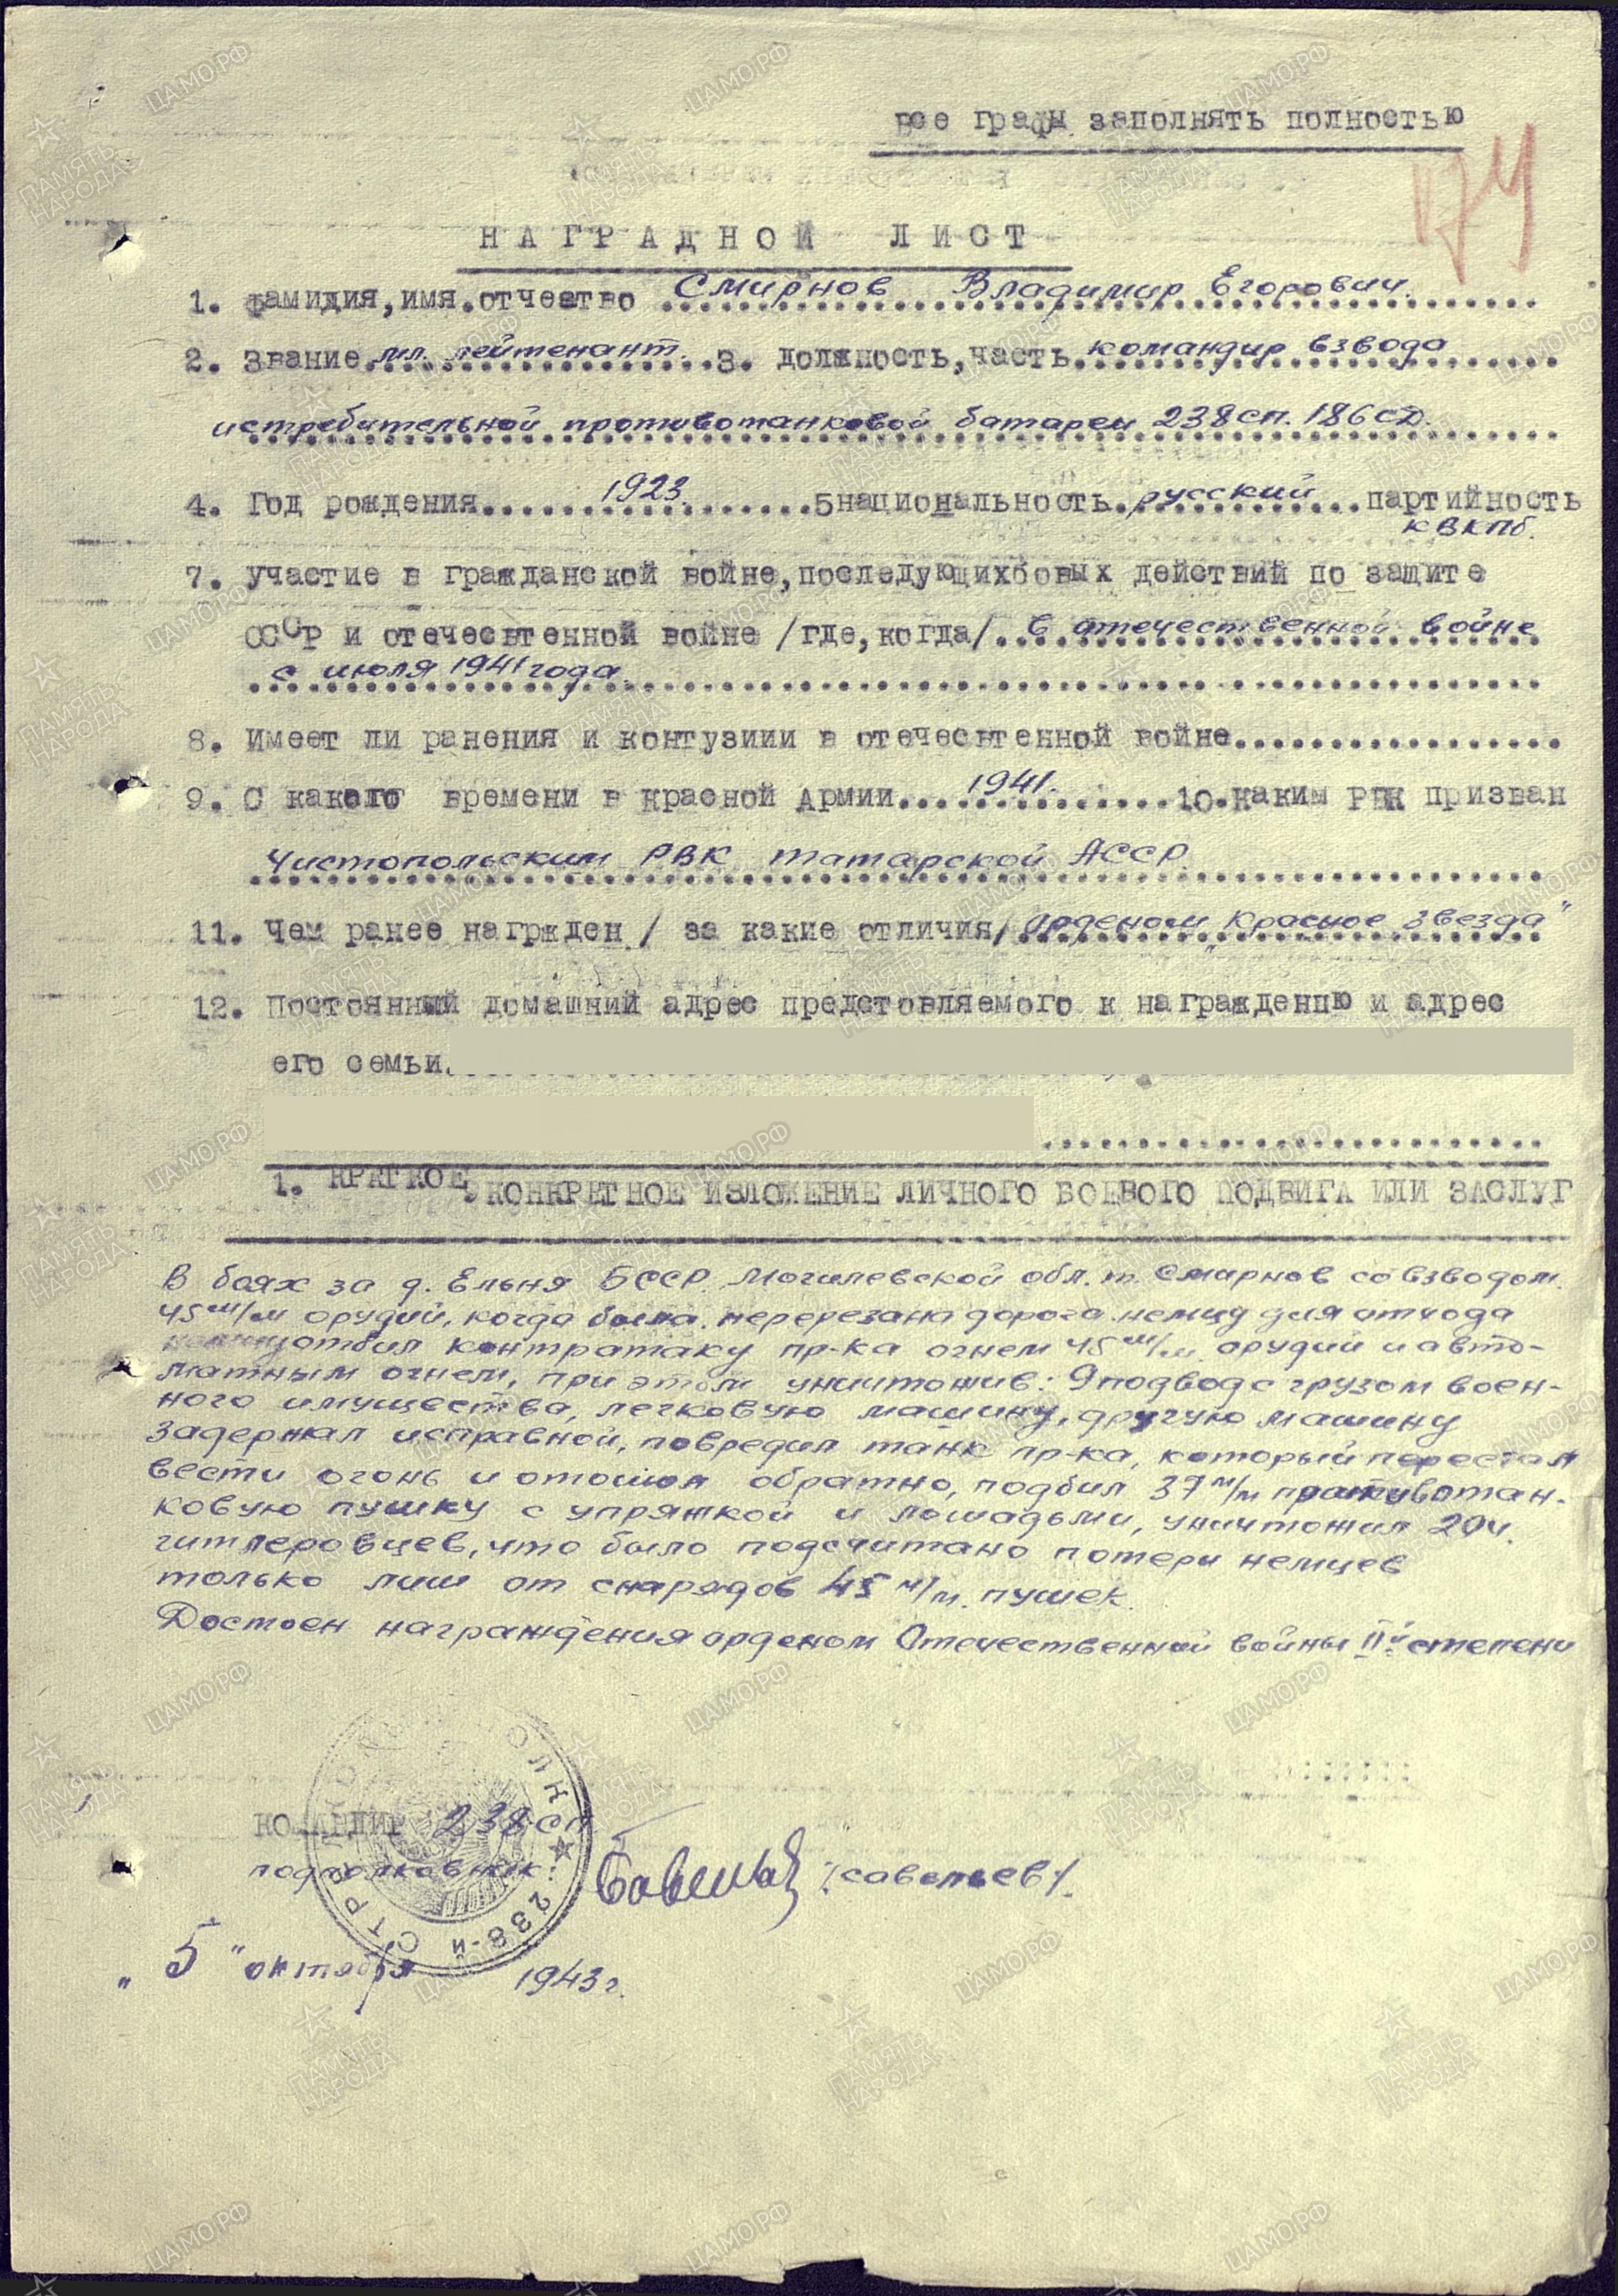 все графы заполнять полностью
174
НАГРАДНОЙ ЛИСТ
1. фамидия,имя.отчество Смирнов Владимир Егорович.
2. Звание мл. лейтенант. 3. должность,часть командир взвода
истребительной противотанковой батареи 238 сп. 186 сд.
4. Год рождения 1923. 5национальность русский партийность
к ВКПб.
7. участие в гражданской войне,последующихбовых действий по защите
СССР и отечесвтенной войне /где,когда/ в отечественной войне
с июля 1941 года.
8. Имеет ли ранения и контузиии в отечесвтенной войне
9. С какого времени в красной Армии 1941. 10.каким РВК призван
Чистопольским РВК татарской АССР
11. Чем ранее нагржден / за какие отличия/ орденом „Красное звезда"
12. Постоянный домашний адрес предстовляемого к награжденпю и адрес
его семьи.
1. КРАТКОЕ, КОНКРЕТНОЕ ИЗЛОЖЕНИЕ ЛИЧНОГО БОЕВОГО ПОДВИГА ИЛИ ЗАСЛУГ
В боях за д. Ельня БССР. Могилевской обл. т. Смирнов со взводом
45 м/м орудий, когда была перерезана дорога немцу для отхода
отбил контратаку пр-ка огнем 45 м/м. орудий и авто-
матным огнем, при этом уничтожив: 9 подвод с грузом воен-
ного имущества, легковую машину, другую машину
задержал исправной, повредил танк пр-ка, который перестал
вести огонь и отошол обратно, подбил 37 м/м противотан-
ковую пушку с упряжкой и лошадьми, уничтожил 20 ч.
гитлеровцев, что было подсчитано потери немцев
только лиш от снарядов 45 м/м. пушек.
Достоен награждения орденом Отечественной войны IIй степени
КОМАНДИР 238 сп
подполковник: Савельев /савельев/.
„5" октября 1943 г.